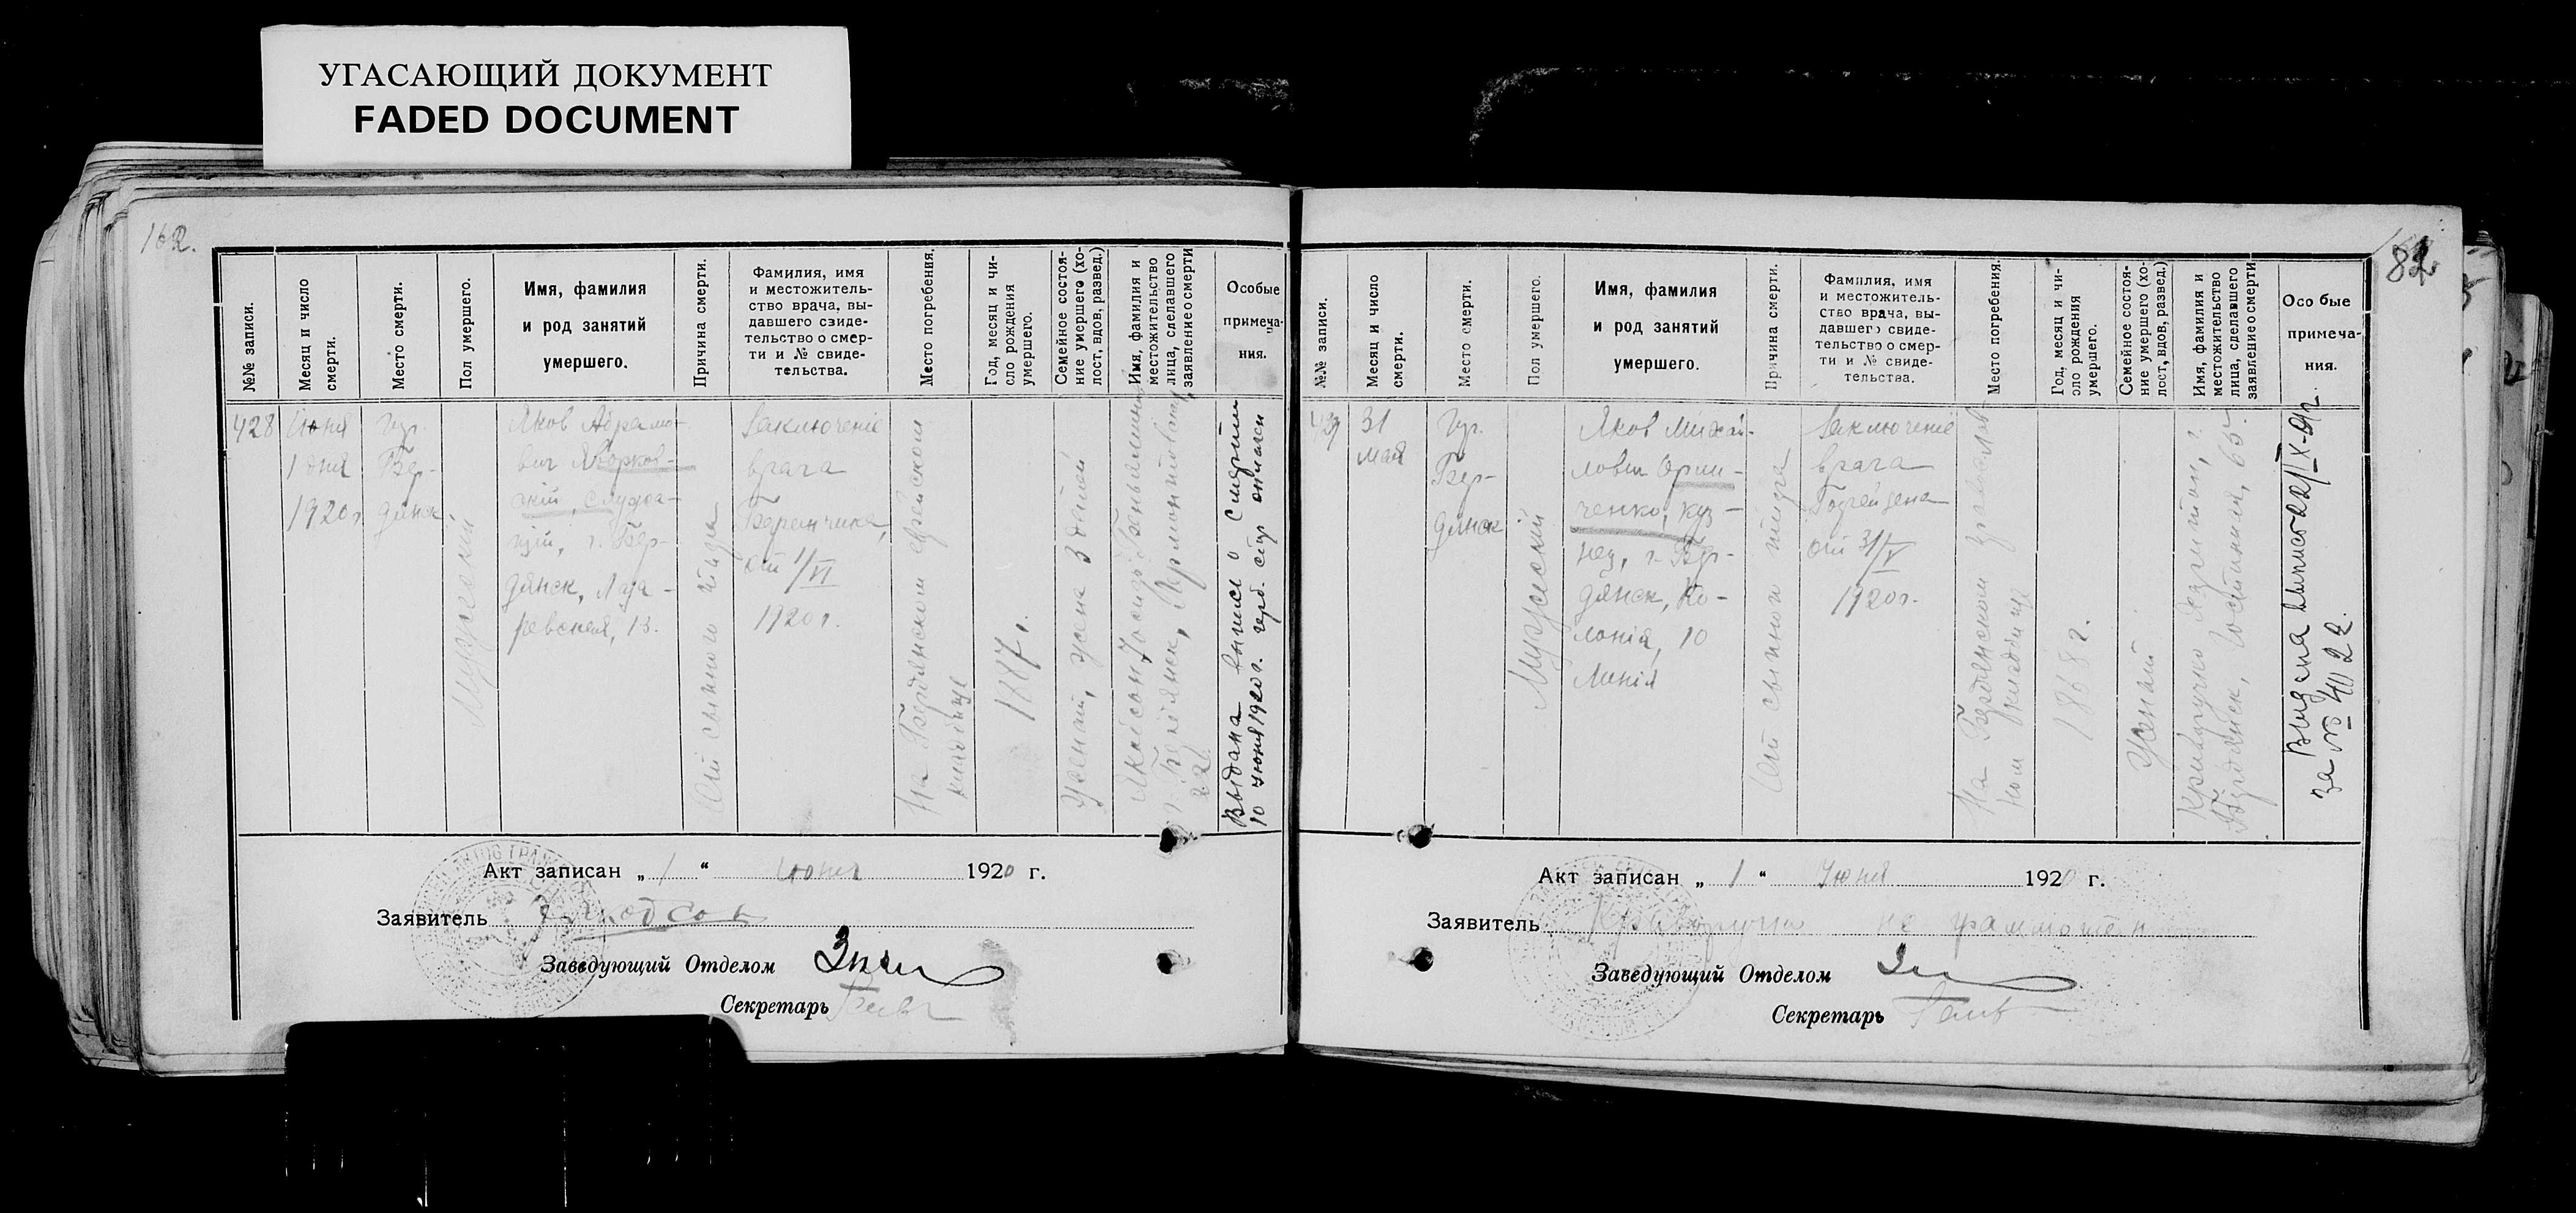 УГАСАЮЩИЙ ДОКУМЕНТ
FADED DOCUMENT
162.
№№ записи.
Месяц и число
смерти.
Место смерти.
Пол умершего.
Имя, фамилия
и род занятий
умершего.
Причина смерти.
Фамилия, имя
и местожитель-
ство врача, вы-
давшего свиде-
тельство о смер-
ти и № свиде-
тельства.
Место погребения.
Год, месяц и чи-
сло рождения
умершего.
Семейное состоя-
ние умершего (хо-
лост, вдов, развед.)
Имя, фамилия и
местожительство
лица, сделавшего
заявление о смерти
Особые
примеча-
ния.
428
Июня
1 дня
1920 г.
Гор.
Бер-
дянск
Мужеской
Яков Абрамо-
вич Яворков-
скій, служа-
щій, г. Бер-
дянск, Лаза-
ревская, 13.
От сыпного тифа
Заключеніе
врача
от 1/VI
1920 г.
На Бердянском еврейском
кладбище
1887 г.
Женат, жена 3 детей
г. Бердянск, Лермонтовская
22.
Выдана выпись о смерти
10 июня 1920 г. герб. сбор оплачен
Акт записан „ 1 “ июня 1920 г.
Заявитель
Заведующий Отделом
Секретарь
82
№№ записи.
Месяц и число
смерти.
Место смерти.
Пол умершего.
Имя, фамилия
и род занятий
умершего.
Причина смерти.
Фамилия, имя
и местожитель-
ство врача, вы-
давшего свиде-
тельство о смер-
ти и № свиде-
тельства.
Место погребения.
Год, месяц и чи-
сло рождения
умершего.
Семейное состоя-
ние умершего (хо-
лост, вдов, развед.)
Имя, фамилия и
местожительство
лица, сделавшего
заявление о смерти
Особые
примеча-
ния.
429
31
мая
Гор.
Бер-
дянск
Мужеский
Яков Михай-
лович Ории-
ченко, куз-
нец, г. Бер-
дянск, Ко-
лонія, 10
Линія
От сыпного тифа
Заключеніе
врача
от 31/V
1920 г.
На Бердянском православ
ном кладбище
1868 г.
Женат
Криворучко
Бердянск, 65
Выдана выпись 22/IX-91г.
за № 4022.
Акт записан „ 1 “ Июня 1920 г.
Заявитель Криворучко не грамотен
Заведующий Отделом
Секретарь